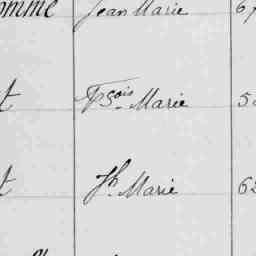 omme Jean Marie 67
t Fçois Marie 5
t Jh Marie 62